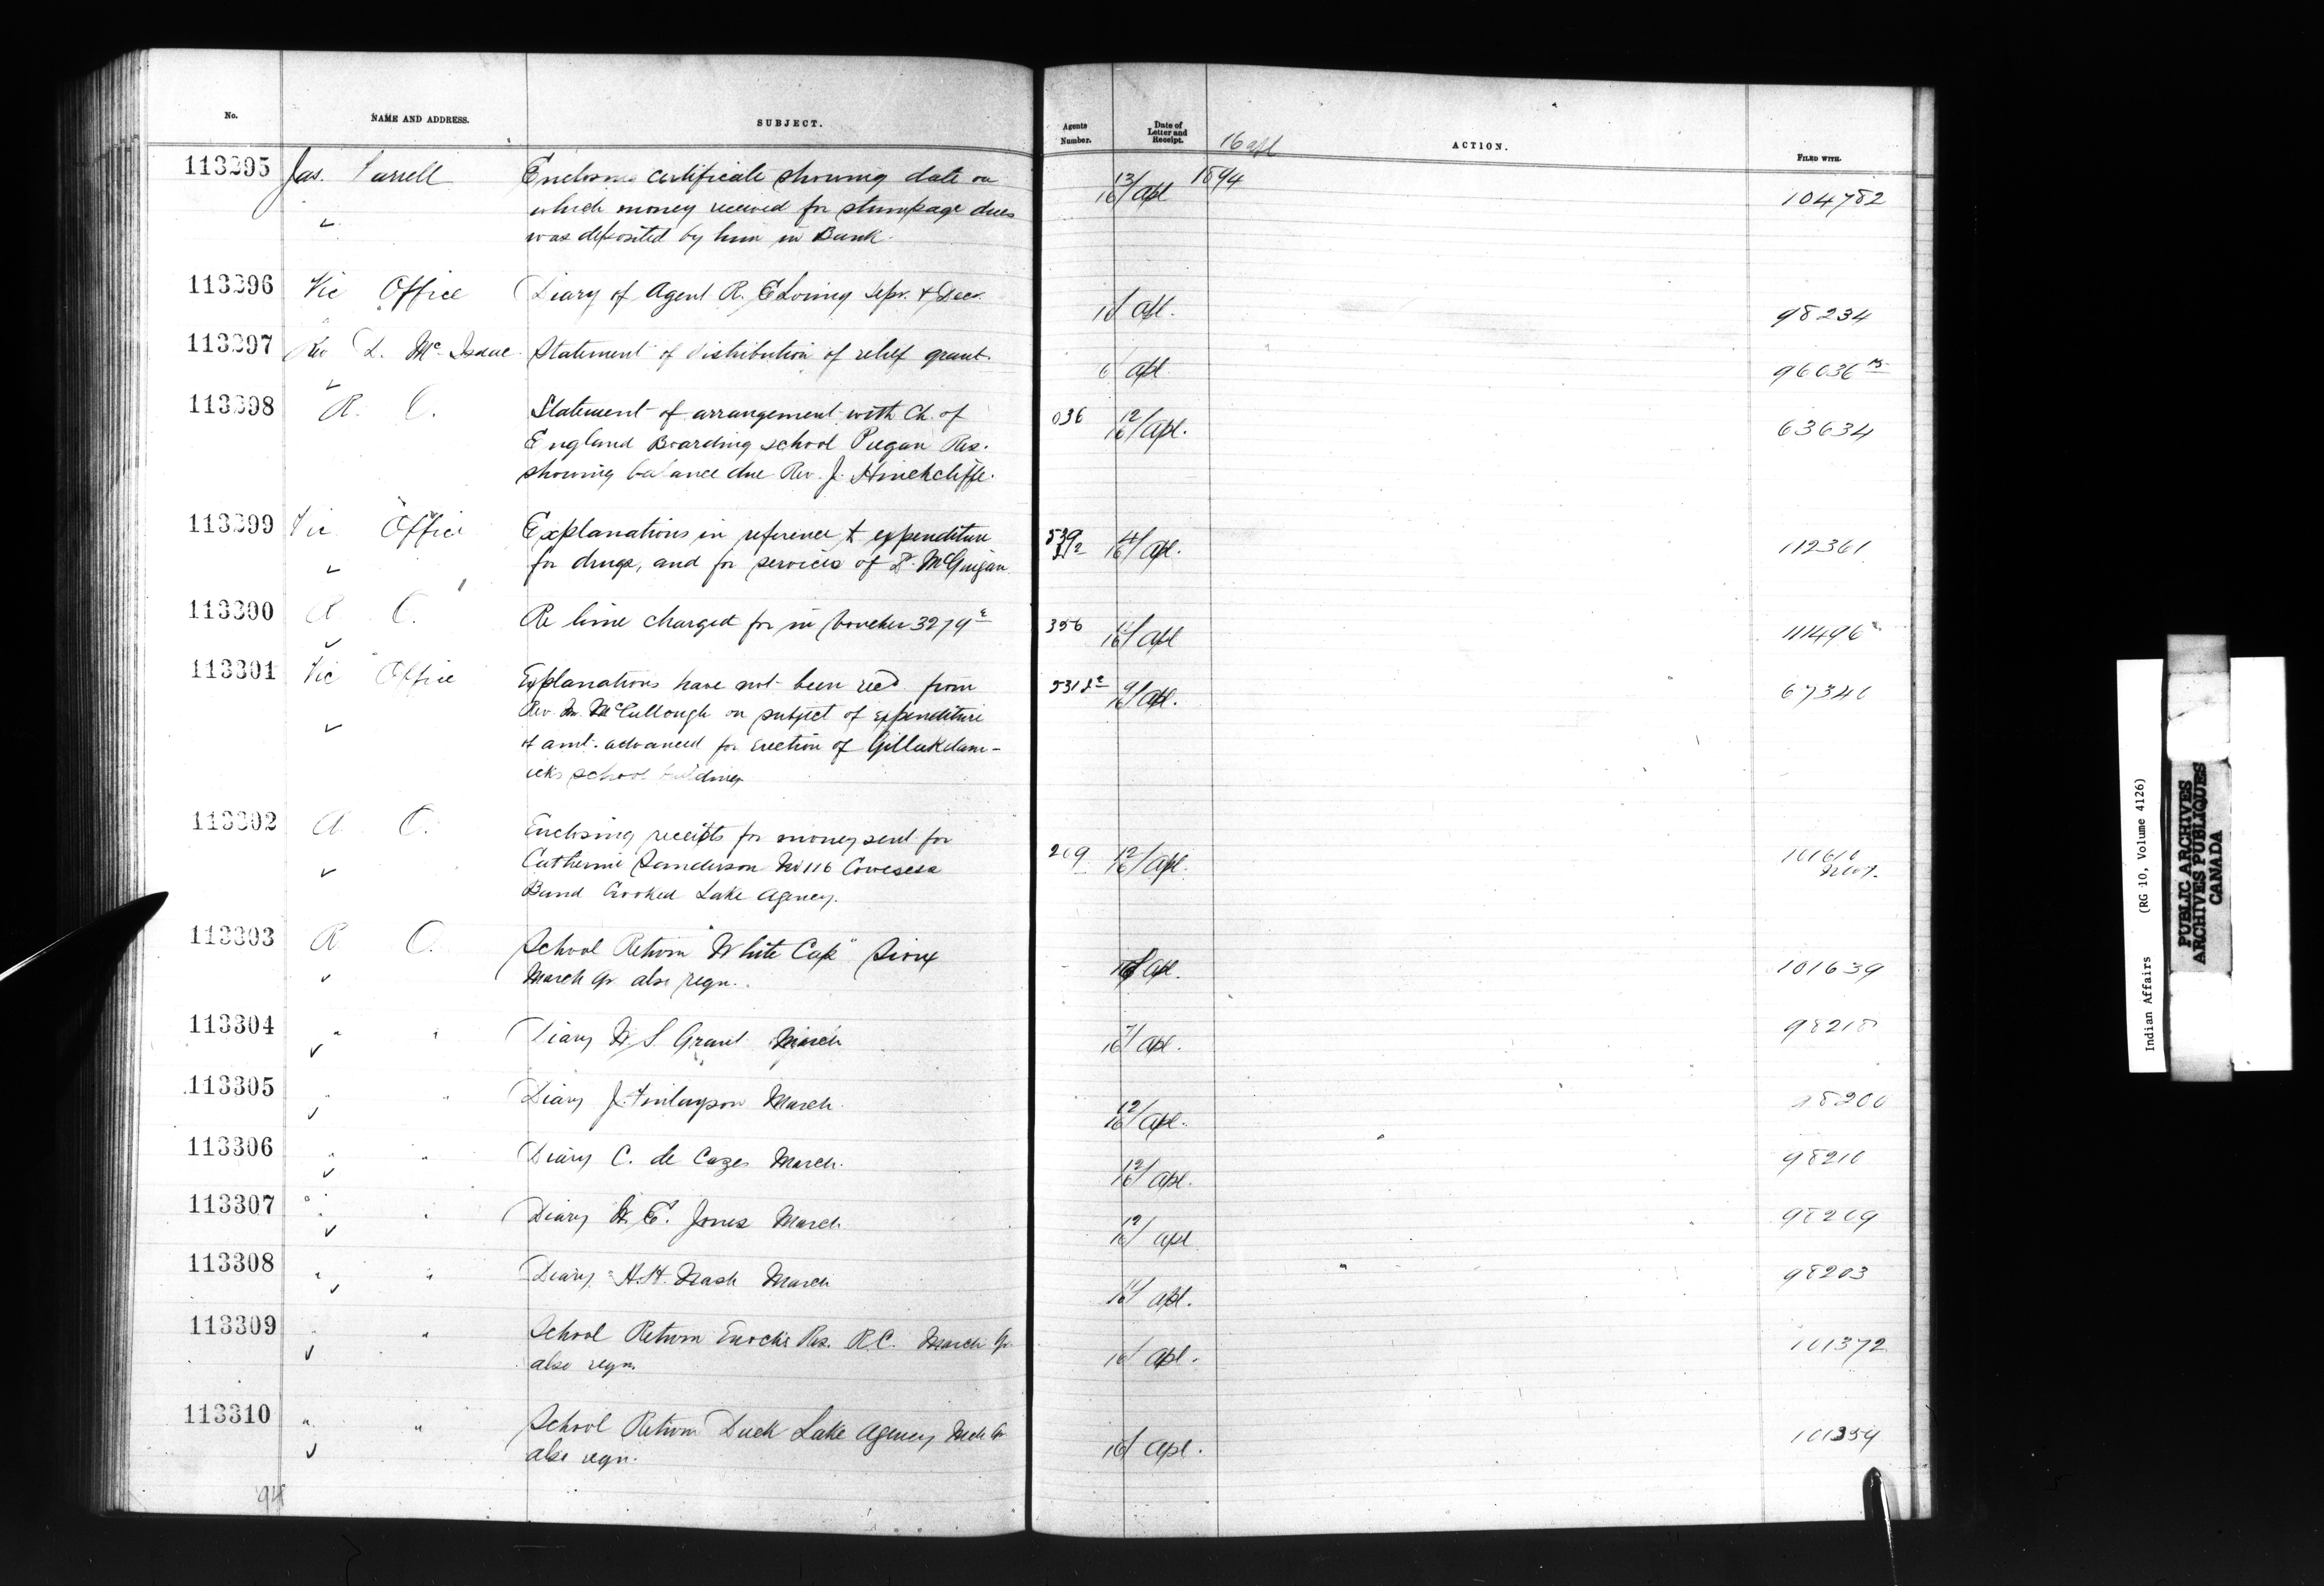 No. NAME AND ADDRESS. SUBJECT. Agents Number. Date of Letter and Receipt. ACTION. FILED WITH.
16 apl
1894
113295 Jas. Farrell Enclosing certificate showing date on 13/16 apl 104782
which money received for stumpage dues
was deposited by him in Bank.
113296 Vic Office Diary of Agent R. E Loring Sepr. & Dec. 16/ apl. 98234
113297 Rev D. McIsaac Statement of distribution of relief grant. 6/ apl 96036
113298 R. O. Statement of arrangement with Ch. of 036 12/16 apl. 63634
England Boarding School Piegan Res.
showing balance due Rev. J. Hinchcliffe.
113299 Vic Office Explanations in reference to expenditure 539 16/ apl. 112361
for drugs, and for services of Dr. McGuigan
113300 R O. Re lime charged for in Voucher 3279 356 16/ apl 111496
113301 Vic Office Explanations have not been recd from 531 9/16 apl. 67340
Rev. Mr. McCullough on subject of expenditure
of amt. advanced for erection of Gillukdam-
icks school building
113302 R O. Enclosing receipts for money sent for 209 12/16 apl.
Catherine Sanderson No 116 Cowesess
Band Crooked Lake Agency.
113303 R O. School Return "White Cap" Sioux 16/ apl. 101639
March Qr also reqn.
113304 " " Diary W. S Grant March 7/16 apl. 98218
113305 " " Diary J. Finlayson March. 12/16 apl. 98200
113306 " " Diary C. de Cazes March. 12/16 apl. 98210
113307 " " Diary W. E. Jones March 12/16 apl 98209
113308 " " Diary H.H. Nash March 11/16 apl. 98203
113309 " " School Return Enoch's Res. R.C. March Qr 16/ apl. 101372
also reqn.
113310 " " School Return Duck Lake Agency Mch Qr 16/ apl. 101359
also reqn.
94
Indian Affairs (RG 10, Volume 4126)
PUBLIC ARCHIVES
ARCHIVES PUBLIQUES
CANADA